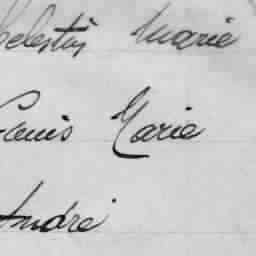 Celestin Marie
Louis Marie
André